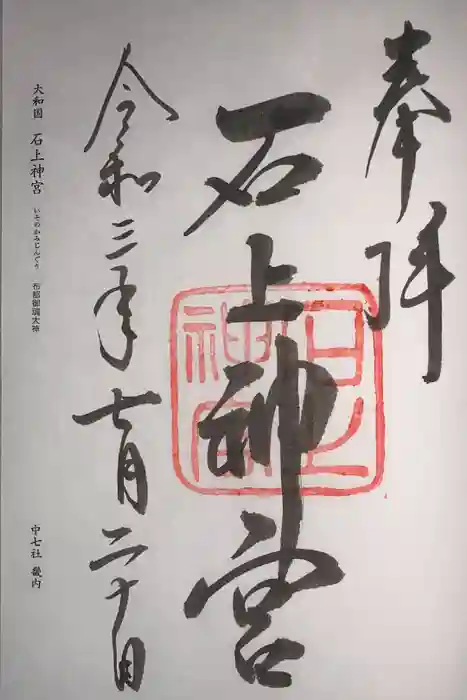 奉拝
石上神宮
石上神宮
令和三年七月二十日
大和國 石上神宮 いそのかみじんぐう 布都御魂大神
中七社 畿内